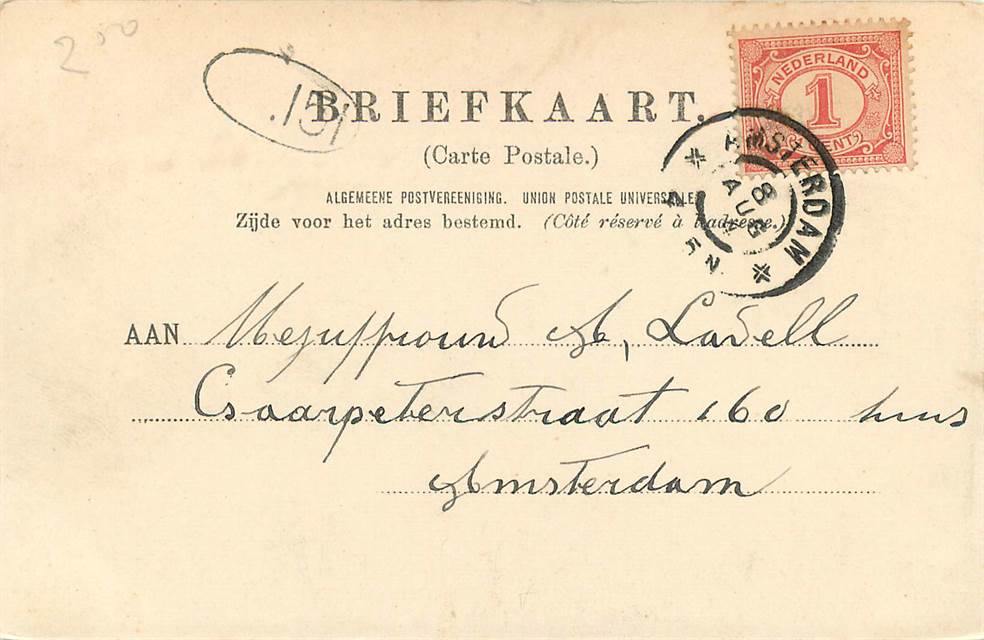 2 50
.151
BRIEFKAART.
(Carte Postale.)
ALGEMEENE POSTVEREENIGING. UNION POSTALE UNIVERSELLE
Zijde voor het adres bestemd. (Côté réservé à l'adresse.)
NEDERLAND
1
CENT
AMSTERDAM
8 AUG
AAN Mejuffrouw A, Ladell
Csaarpeterstraat 160 huis
Amsterdam